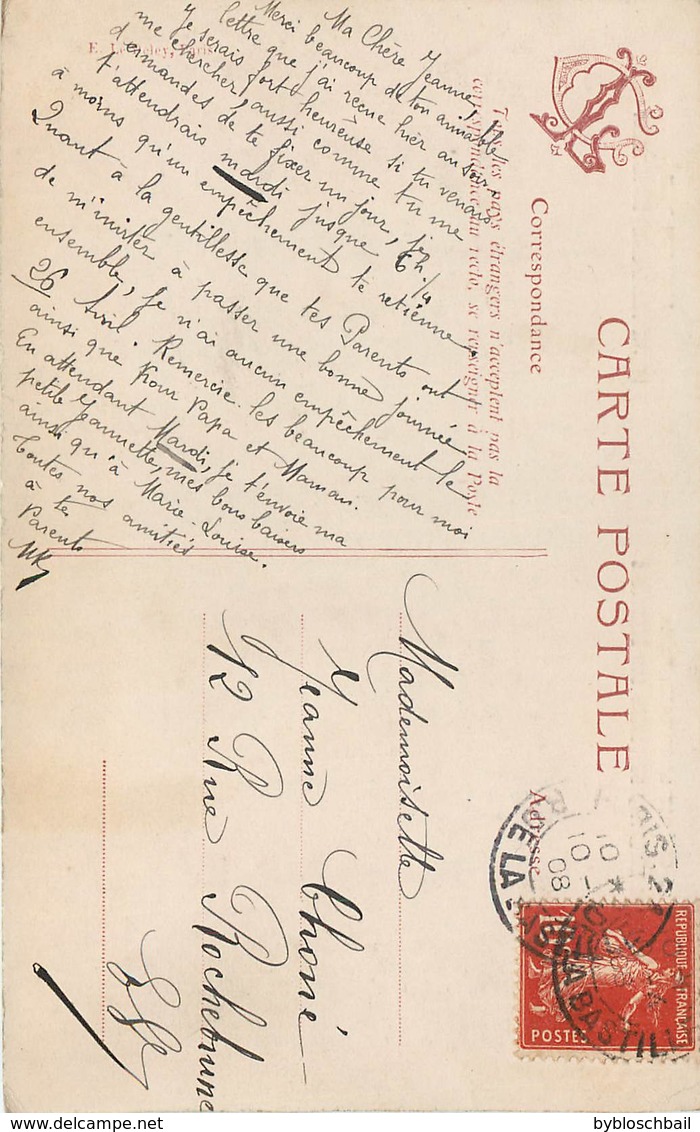 CARTE POSTALE
Correspondance
Adresse
Tous les pays étrangers n'acceptent pas la
correspondance au recto, se renseigner à la Poste
Ma Chère Jeanne,
Merci beaucoup de ton aimable
lettre que j'ai reçue hier au soir.
Je serais fort heureuse si tu venais
me chercher aussi comme tu me
demandes de te fixer un jour, je
t'attendrais mardi jusque
à moins qu'un empêchement te retienne.
Quant à la gentillesse que tes Parents ont
de m'inviter à passer une bonne journée
ensemble, je n'ai aucun empêchement le
26 Avril. Remercie-les beaucoup pour moi
ainsi que Pour Papa et Maman.
En attendant Mardi, je t'envoie ma
petite Jeannette, mes bons baisers
ainsi qu'à Marie-Louise.
Toutes nos amitiés
à tes
Parents
Mademoiselle
Jeanne Choné
12 Rue Rochebrune
REPUBLIQUE FRANÇAISE
10
POSTES
PARIS
DE LA BASTILLE
LA BASTILLE
08
bybloschbail